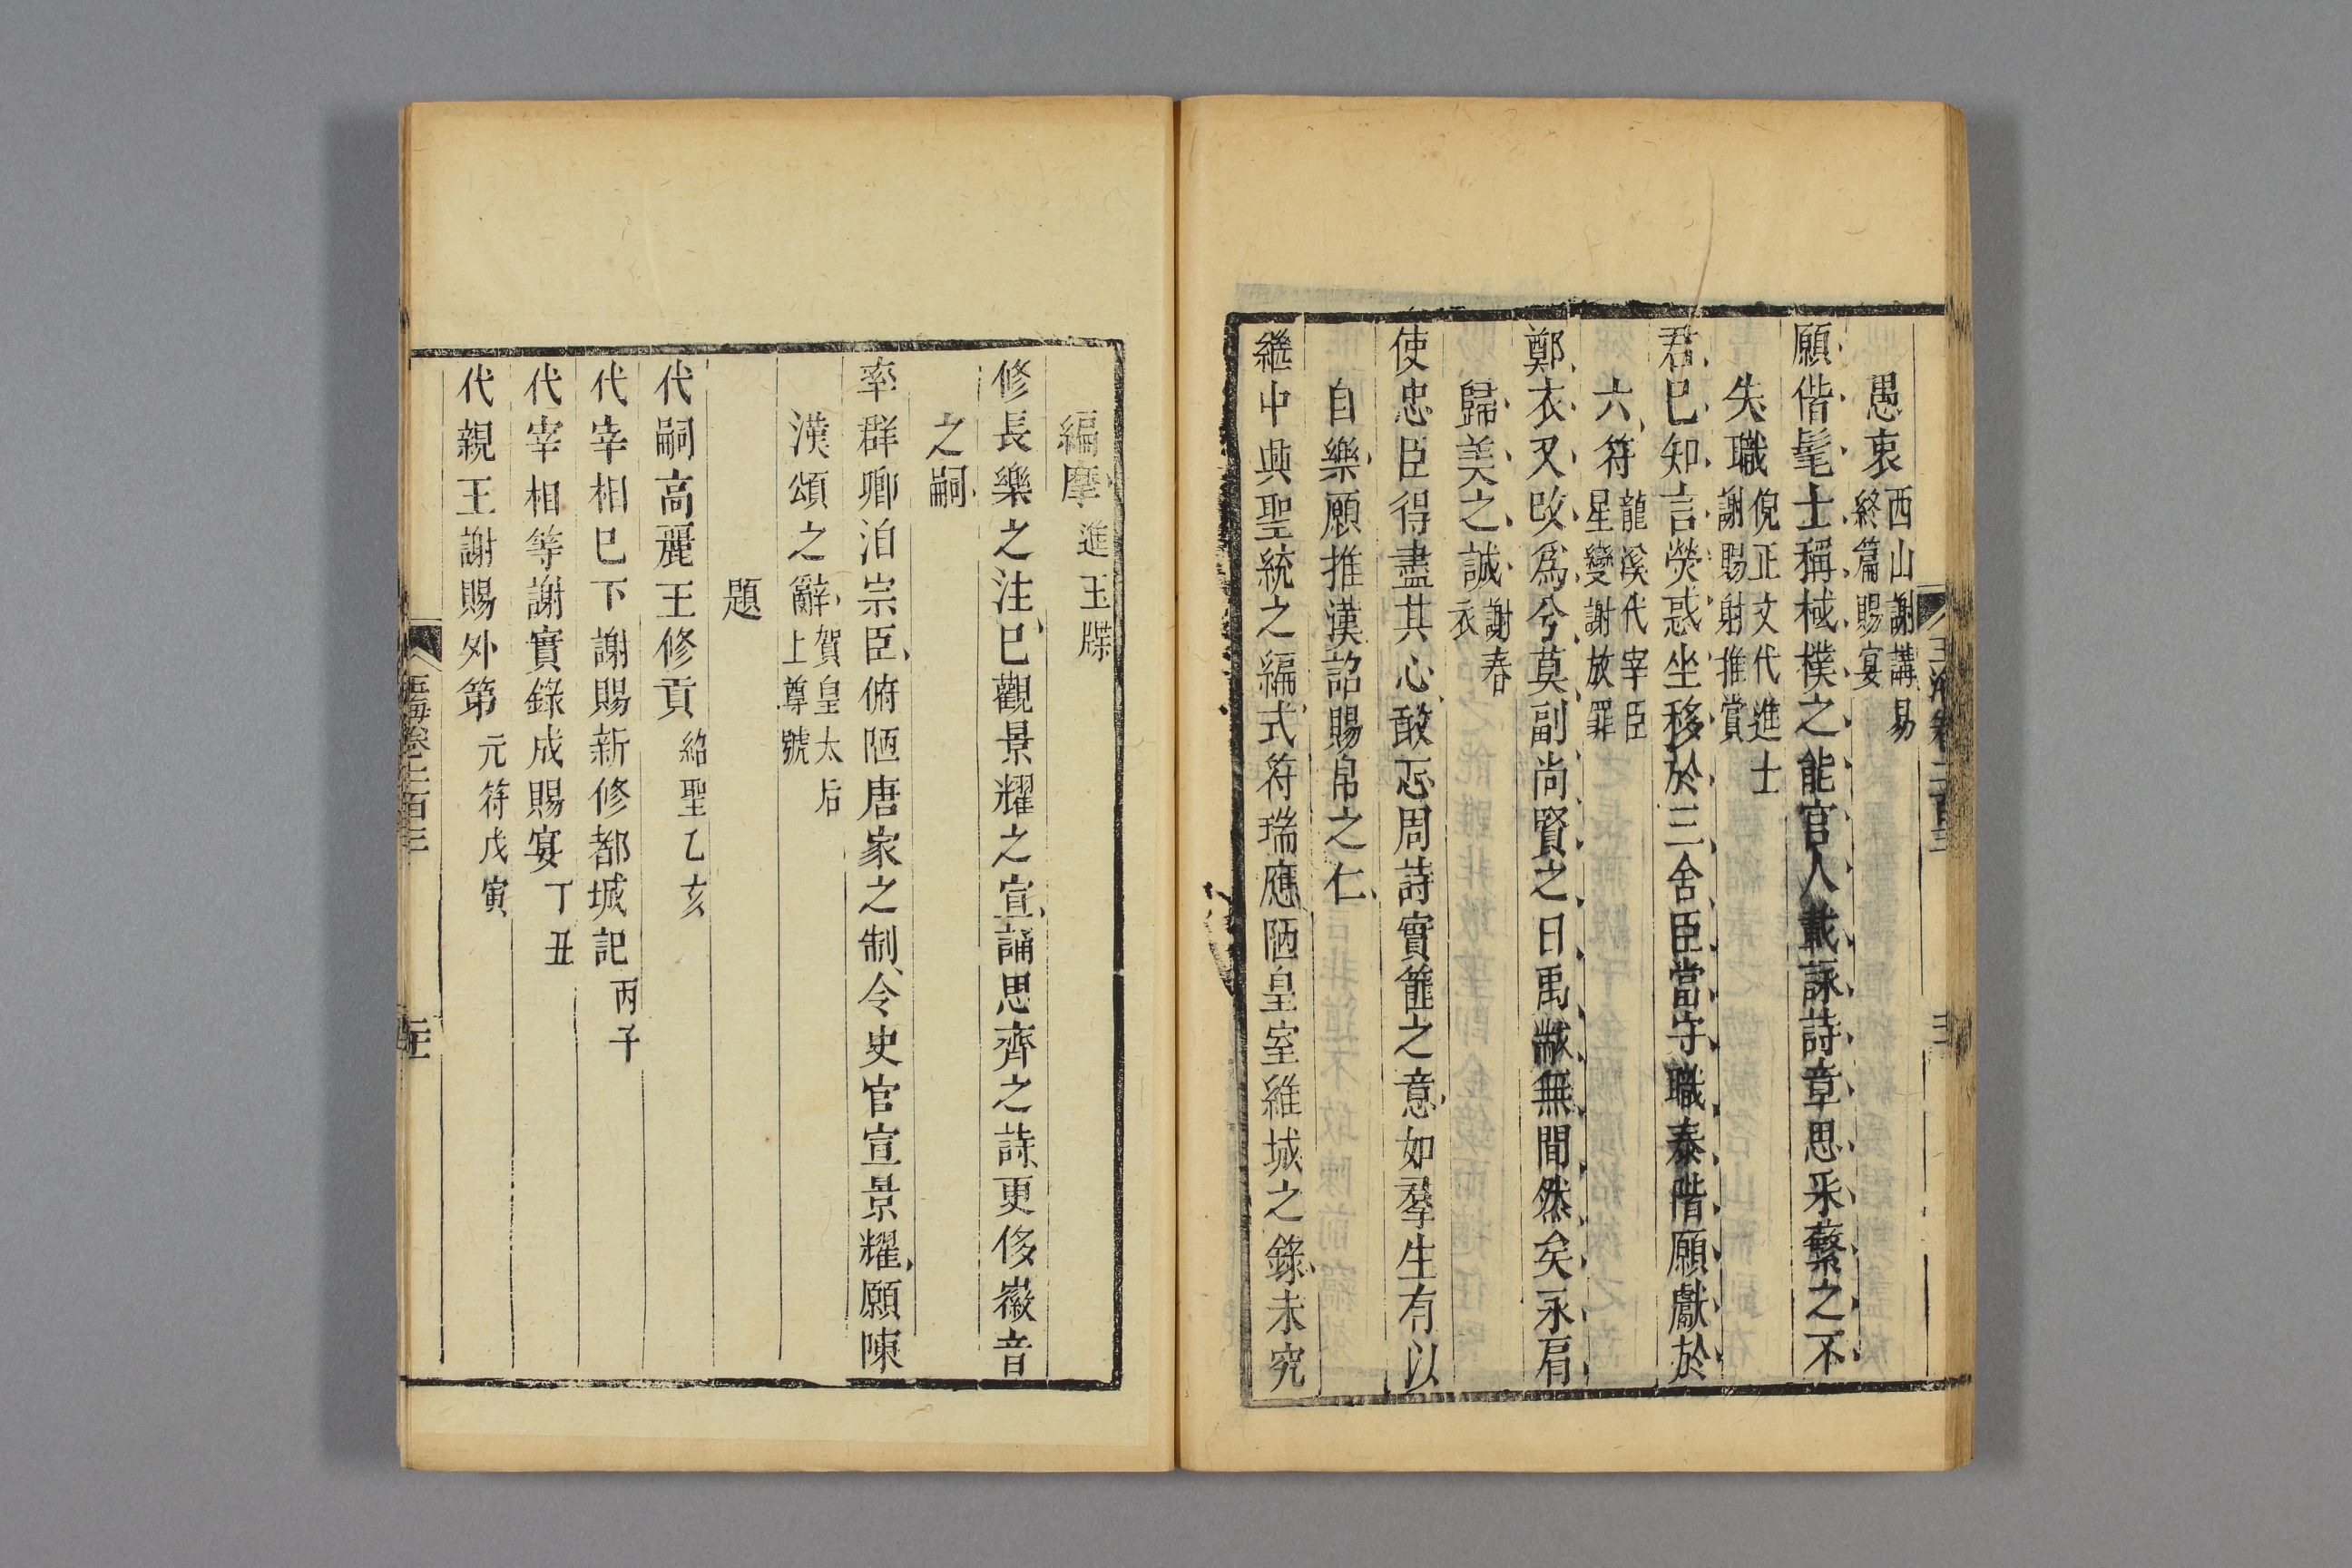 愚衷西山謝講易終篇賜宴
願偕髦士稱棫樸之能官人載詠詩章思采蘩之不
失職倪正文代進士謝賜射推賞
君巳知言熒惑坐移於三舍臣當守職泰階願獻於
六符龍溪代宰臣星變謝放罪
鄭衣又改爲兮莫副尚賢之日禹黻無間然矣永肩
歸美之誠謝春衣
使忠臣得盡其心敢忘周詩實篚之意如羣生有以
自樂願推漢詔賜帛之仁
繼中興聖統之編式符瑞應陋皇室維城之錄未究
編摩進玉牒
修長樂之注巳觀景耀之宣誦思齊之詩更侈徽音
之嗣
率群卿洎宗臣俯陋唐家之制令史官宣景耀願陳
漢頌之辭賀皇太后上尊號
題
代嗣高麗王修貢紹聖乙亥
代宰相巳下謝賜新修都城記丙子
代宰相等謝實錄成賜宴丁丑
代親王謝賜外第元符戊寅